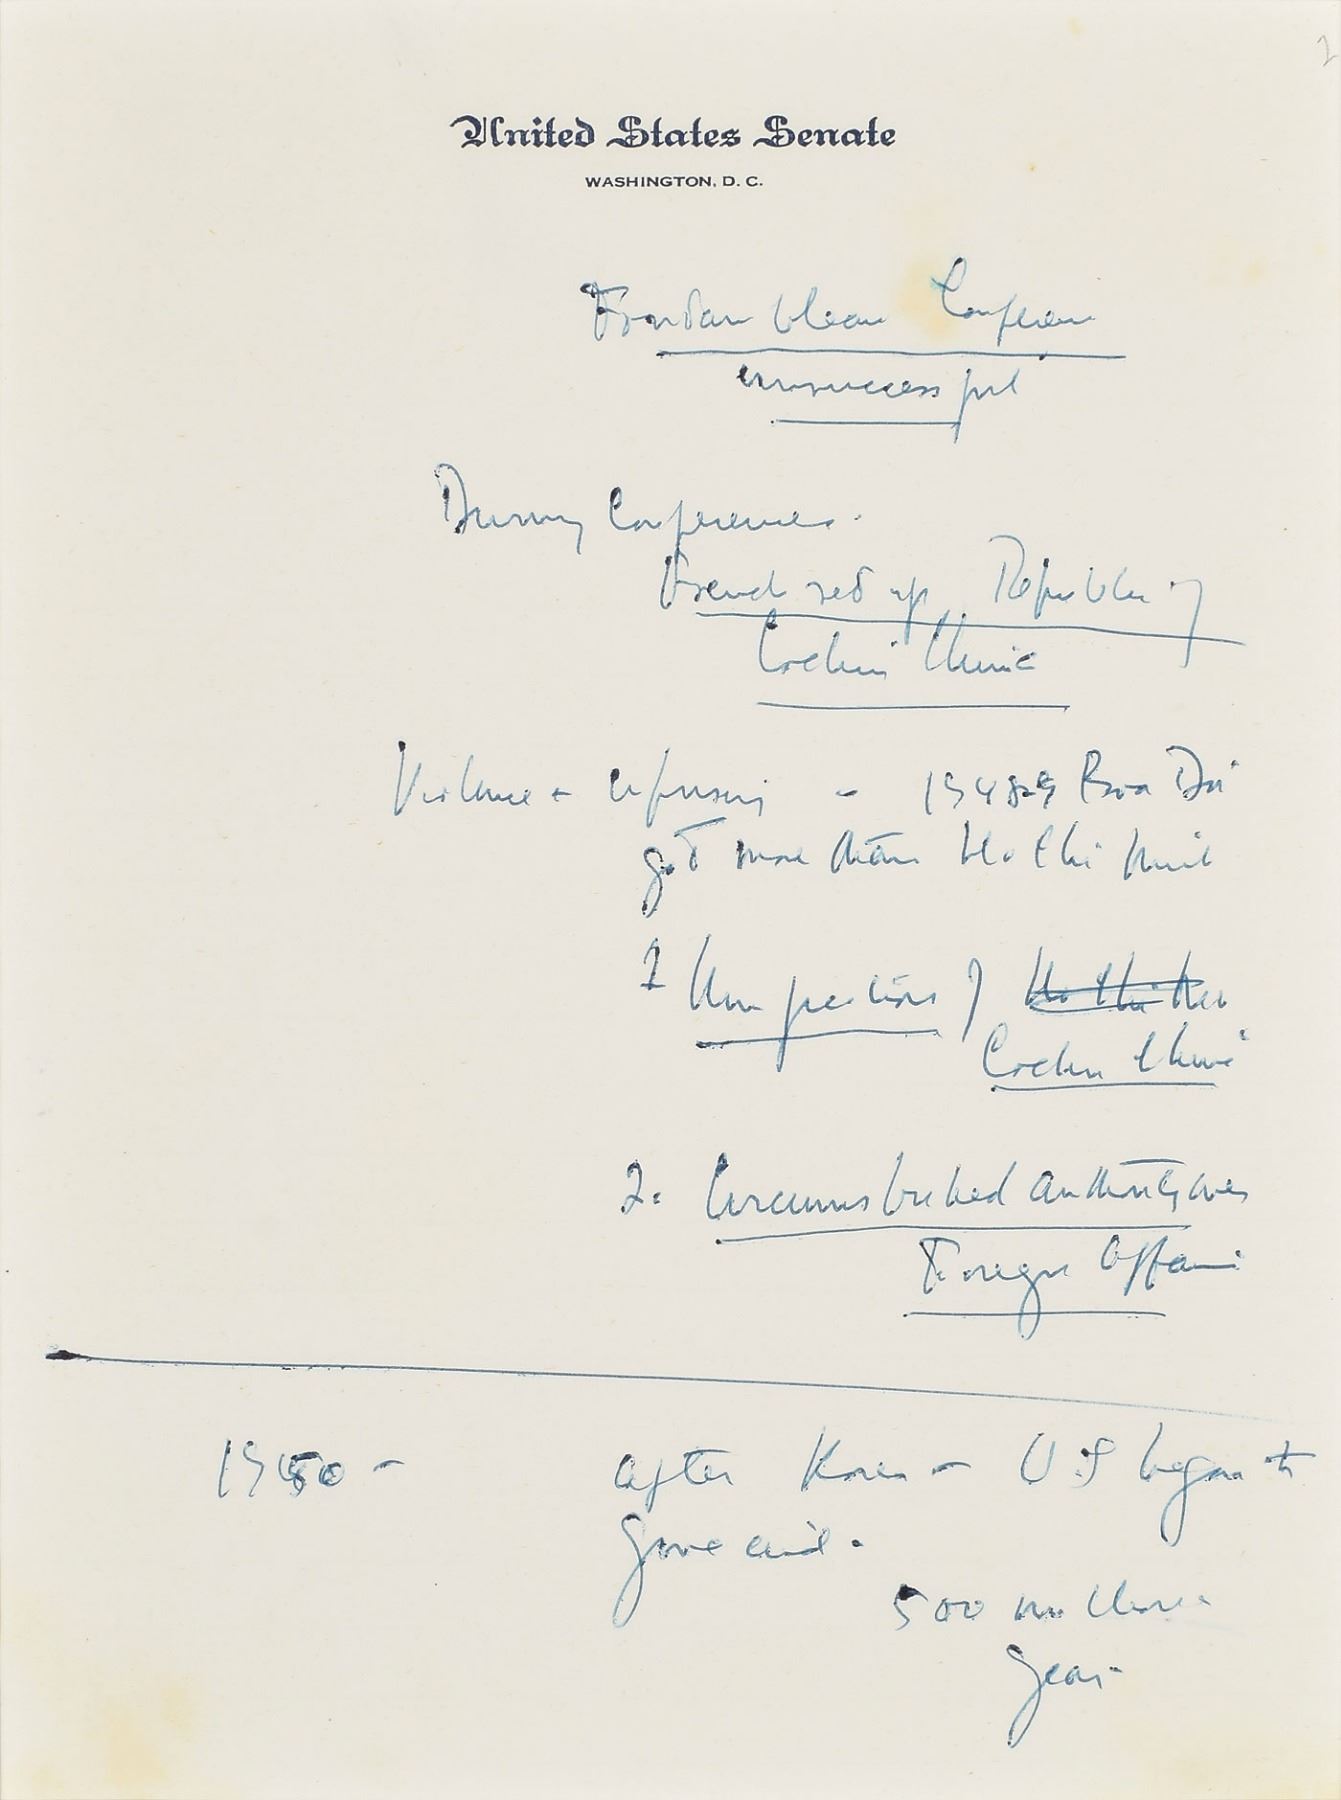 2
United States Senate
WASHINGTON, D. C.
Fontainbleau Conference
unsuccessful
During Conference.
French set up Republic of
Cochin China
Violence + confusion - 1948-9 Boa Dai
got more than Ho Chi Minh
1 Unification of Ho Chi Min
Cochin China
2. Circumscribed authority over
Foreign Affairs
1950 - after Korea - U.S began to
give aid.
500 millions
year.